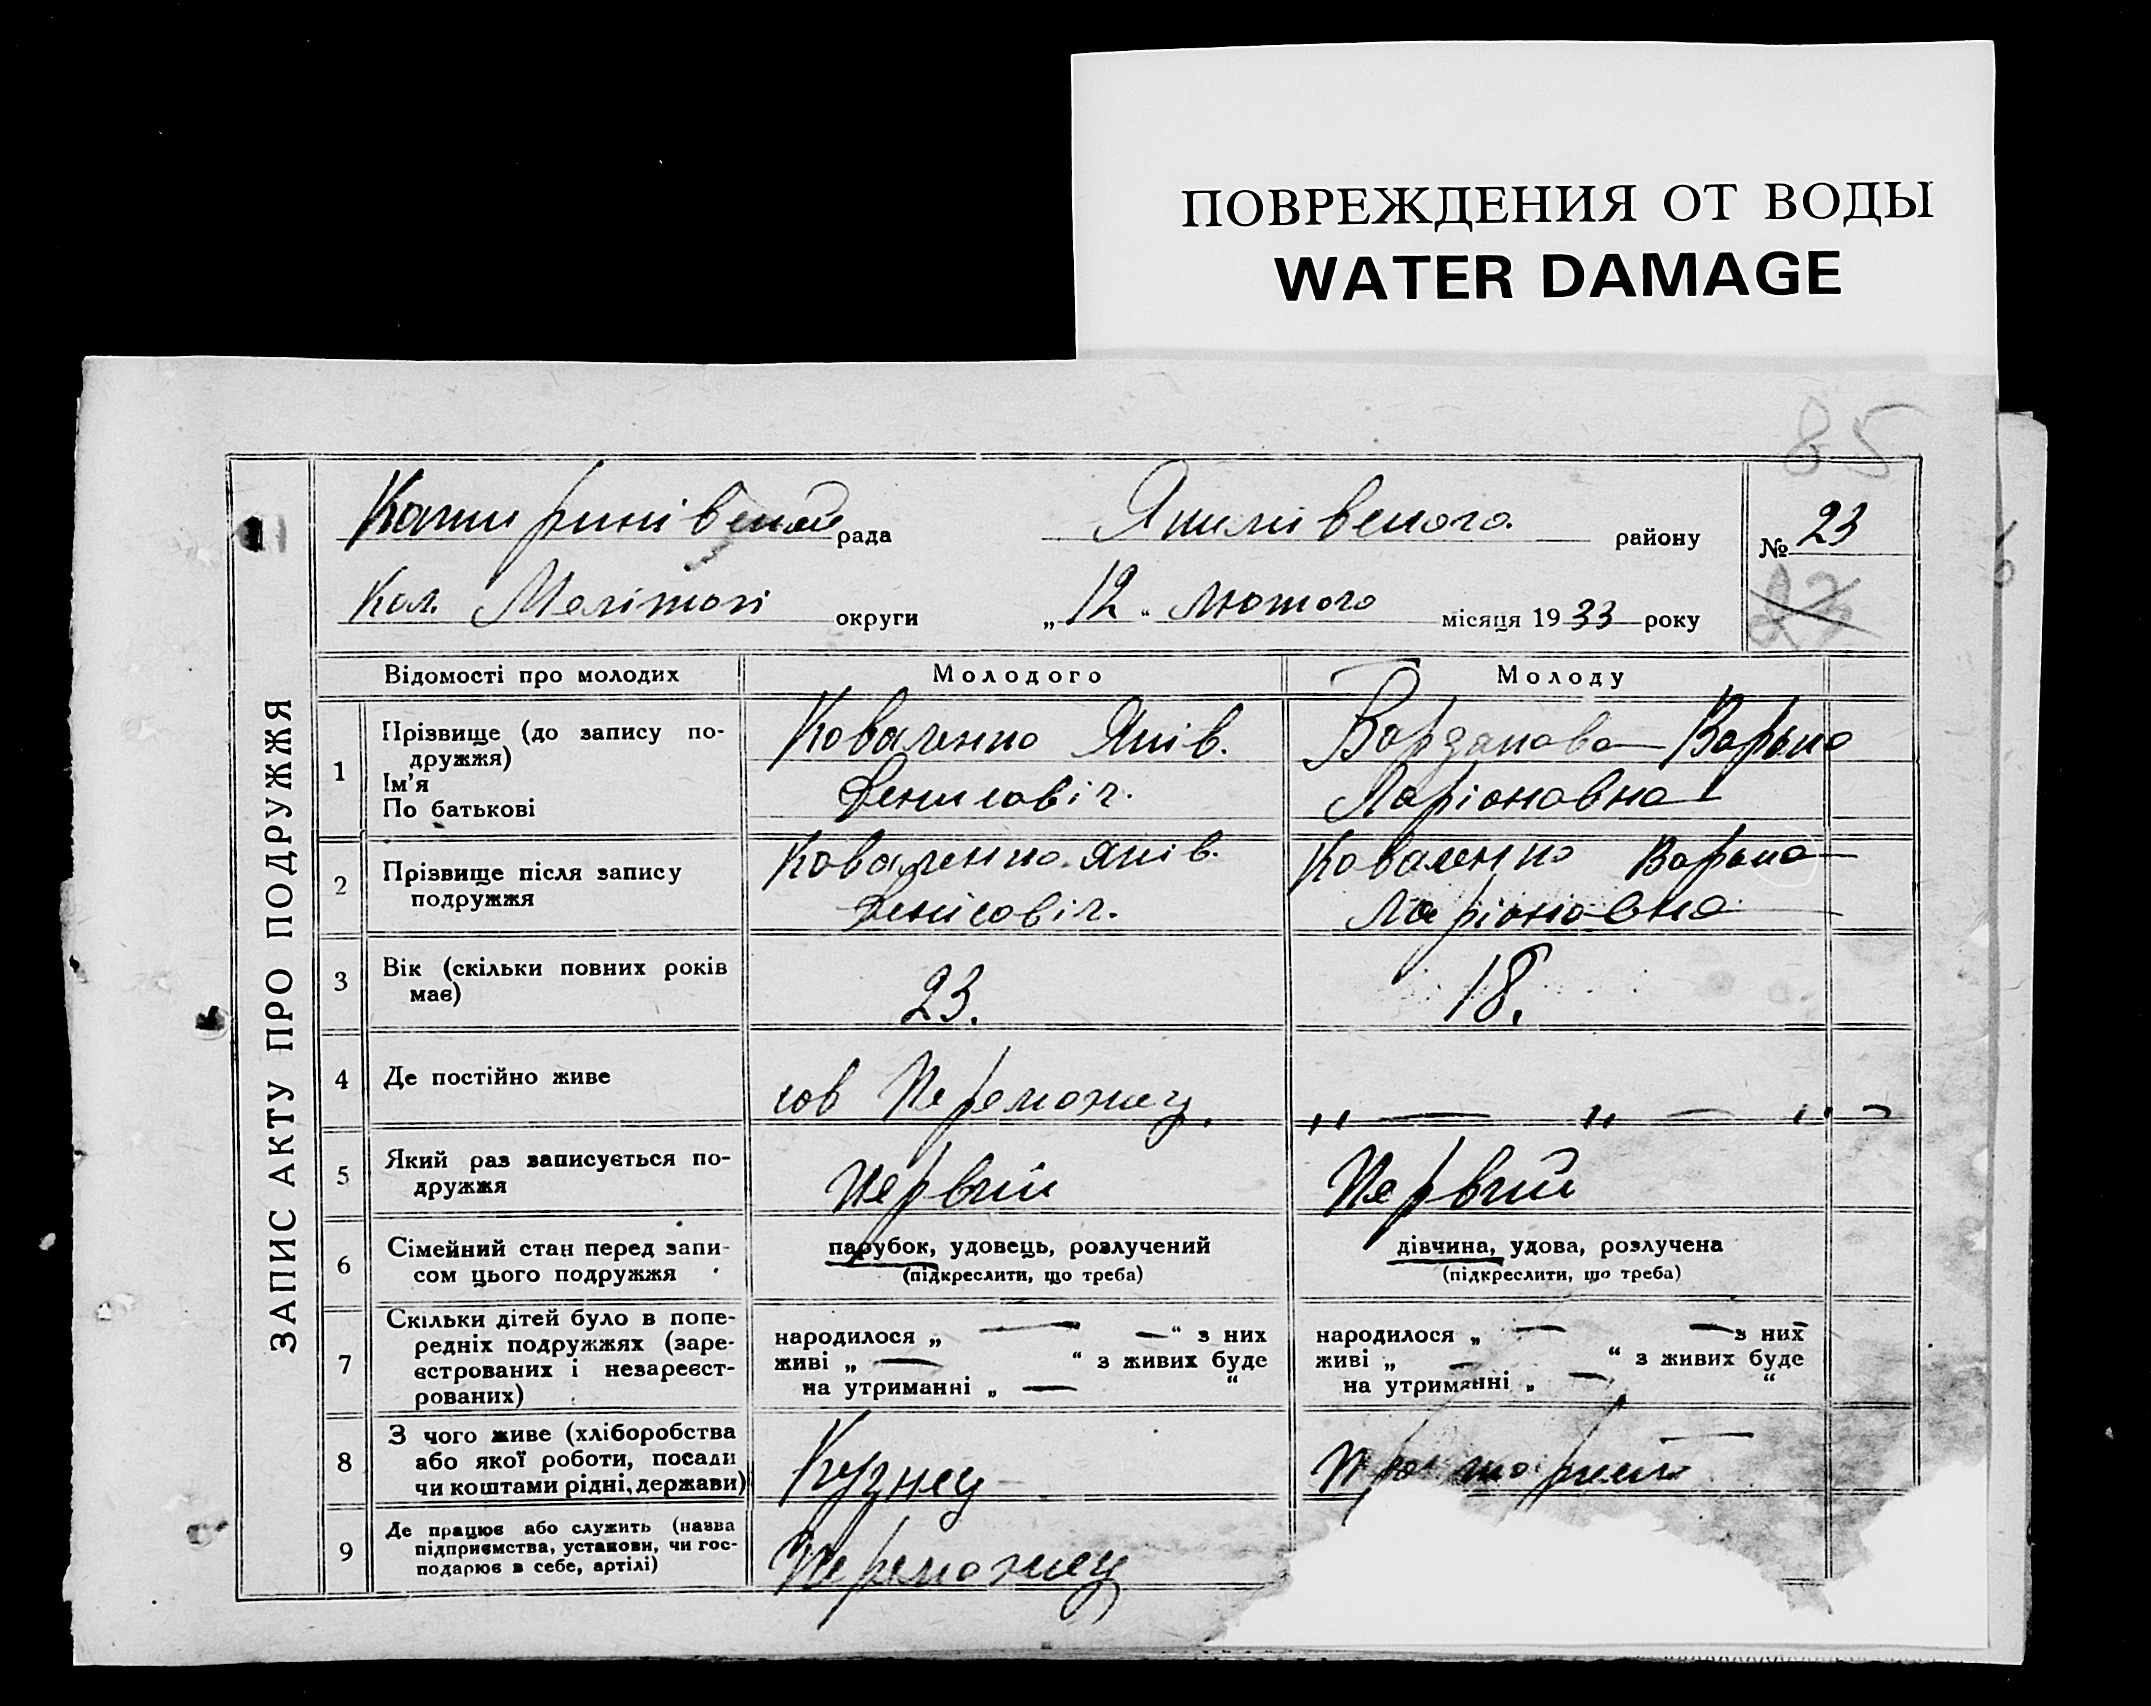 ПОВРЕЖДЕНИЯ ОТ ВОДЫ
WATER DAMAGE
85
ЗАПИС АКТУ ПРО ПОДРУЖЖЯ
рада Якимівського району № 23
Кол. Мелітопі округи „12“ лютого місяця 1933 року
23
Відомості про молодих Молодого Молоду
1 Прізвище (до запису подружжя) Коваленко Яків. Варька
Ім'я
По батькові Денисовіч. Ларіоновна
2 Прізвище після запису Коваленко Яків. Коваленко Варька
подружжя Денісовіч. Ларіоновна
3 Вік (скільки повних років 23. 18.
має)
4 Де постійно живе сов Переможец. „ — „ — „
5 Який раз записується по- Первий Первий
дружжя
6 Сімейний стан перед запи- парубок, удовець, розлучений дівчина, удова, розлучена
сом цього подружжя (підкреслити, що треба) (підкреслити, що треба)
7 Скільки дітей було в попе-
редніх подружжях (заре- народилося „ — — “ з них народилося „ — — з них
єстрованих і незареєст- живі „ — “ з живих буде живі „ — “ з живих буде
рованих) на утриманні „ — “ на утриманні „ — “
8 З чого живе (хліборобства
або якої роботи, посади Кузнец
чи коштами рідні, держави)
9 Де працює або служить (назва
підприємства, установи, чи гос- Переможец
подарює в себе, артілі)